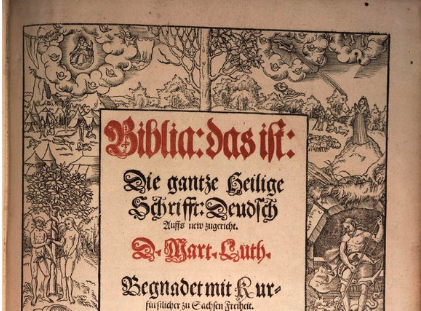 Biblia: das ist:
Die gantze Heilige
Schrifft: Deudsch
Auffs new zugericht.
D. Mart. Luth.
Begnadet mit Kur-
fürstlicher zu Sachsen Freiheit.